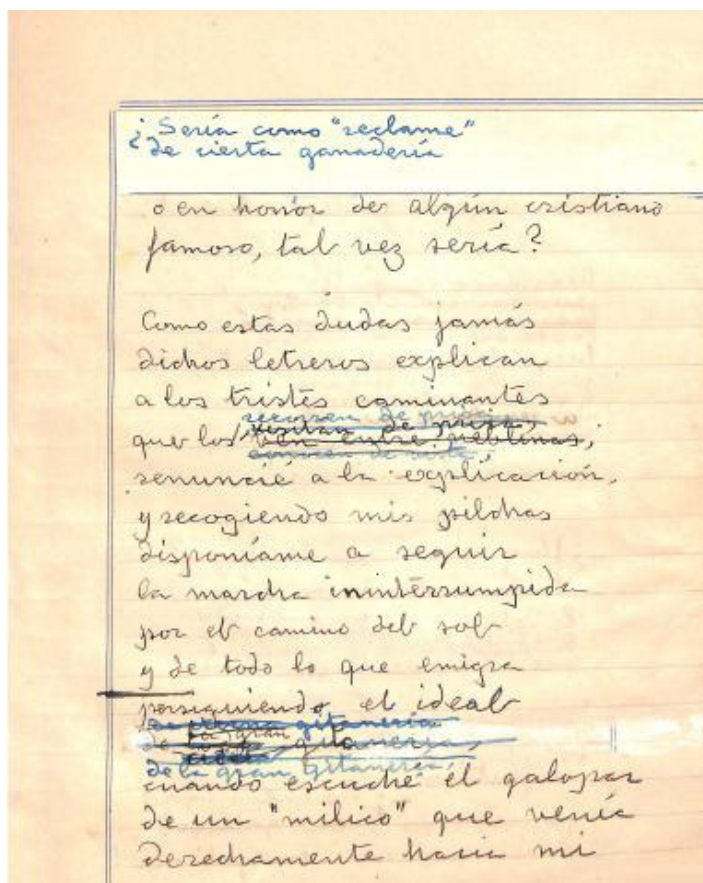 ¿Sería como "reclame"
de cierta ganadería
o en honor de algún cristiano
famoso, tal vez sería?
Como estas dudas jamás
dichos letreros explican
a los tristes caminantes
recorren de prisa,
que los visitan de prisa,
ven entre neblinas,
conocen de vista
renuncié a la explicación,
y recogiendo mis pilchas
disponíame a seguir
la marcha ininterrumpida
por el camino del sol
y de todo lo que emigra
persiguiendo el ideal
gitanería
de la gran gitanería,
de la gran gitanería,
cuando escuché el galopar
de un "milico" que venía
derechamente hacia mi